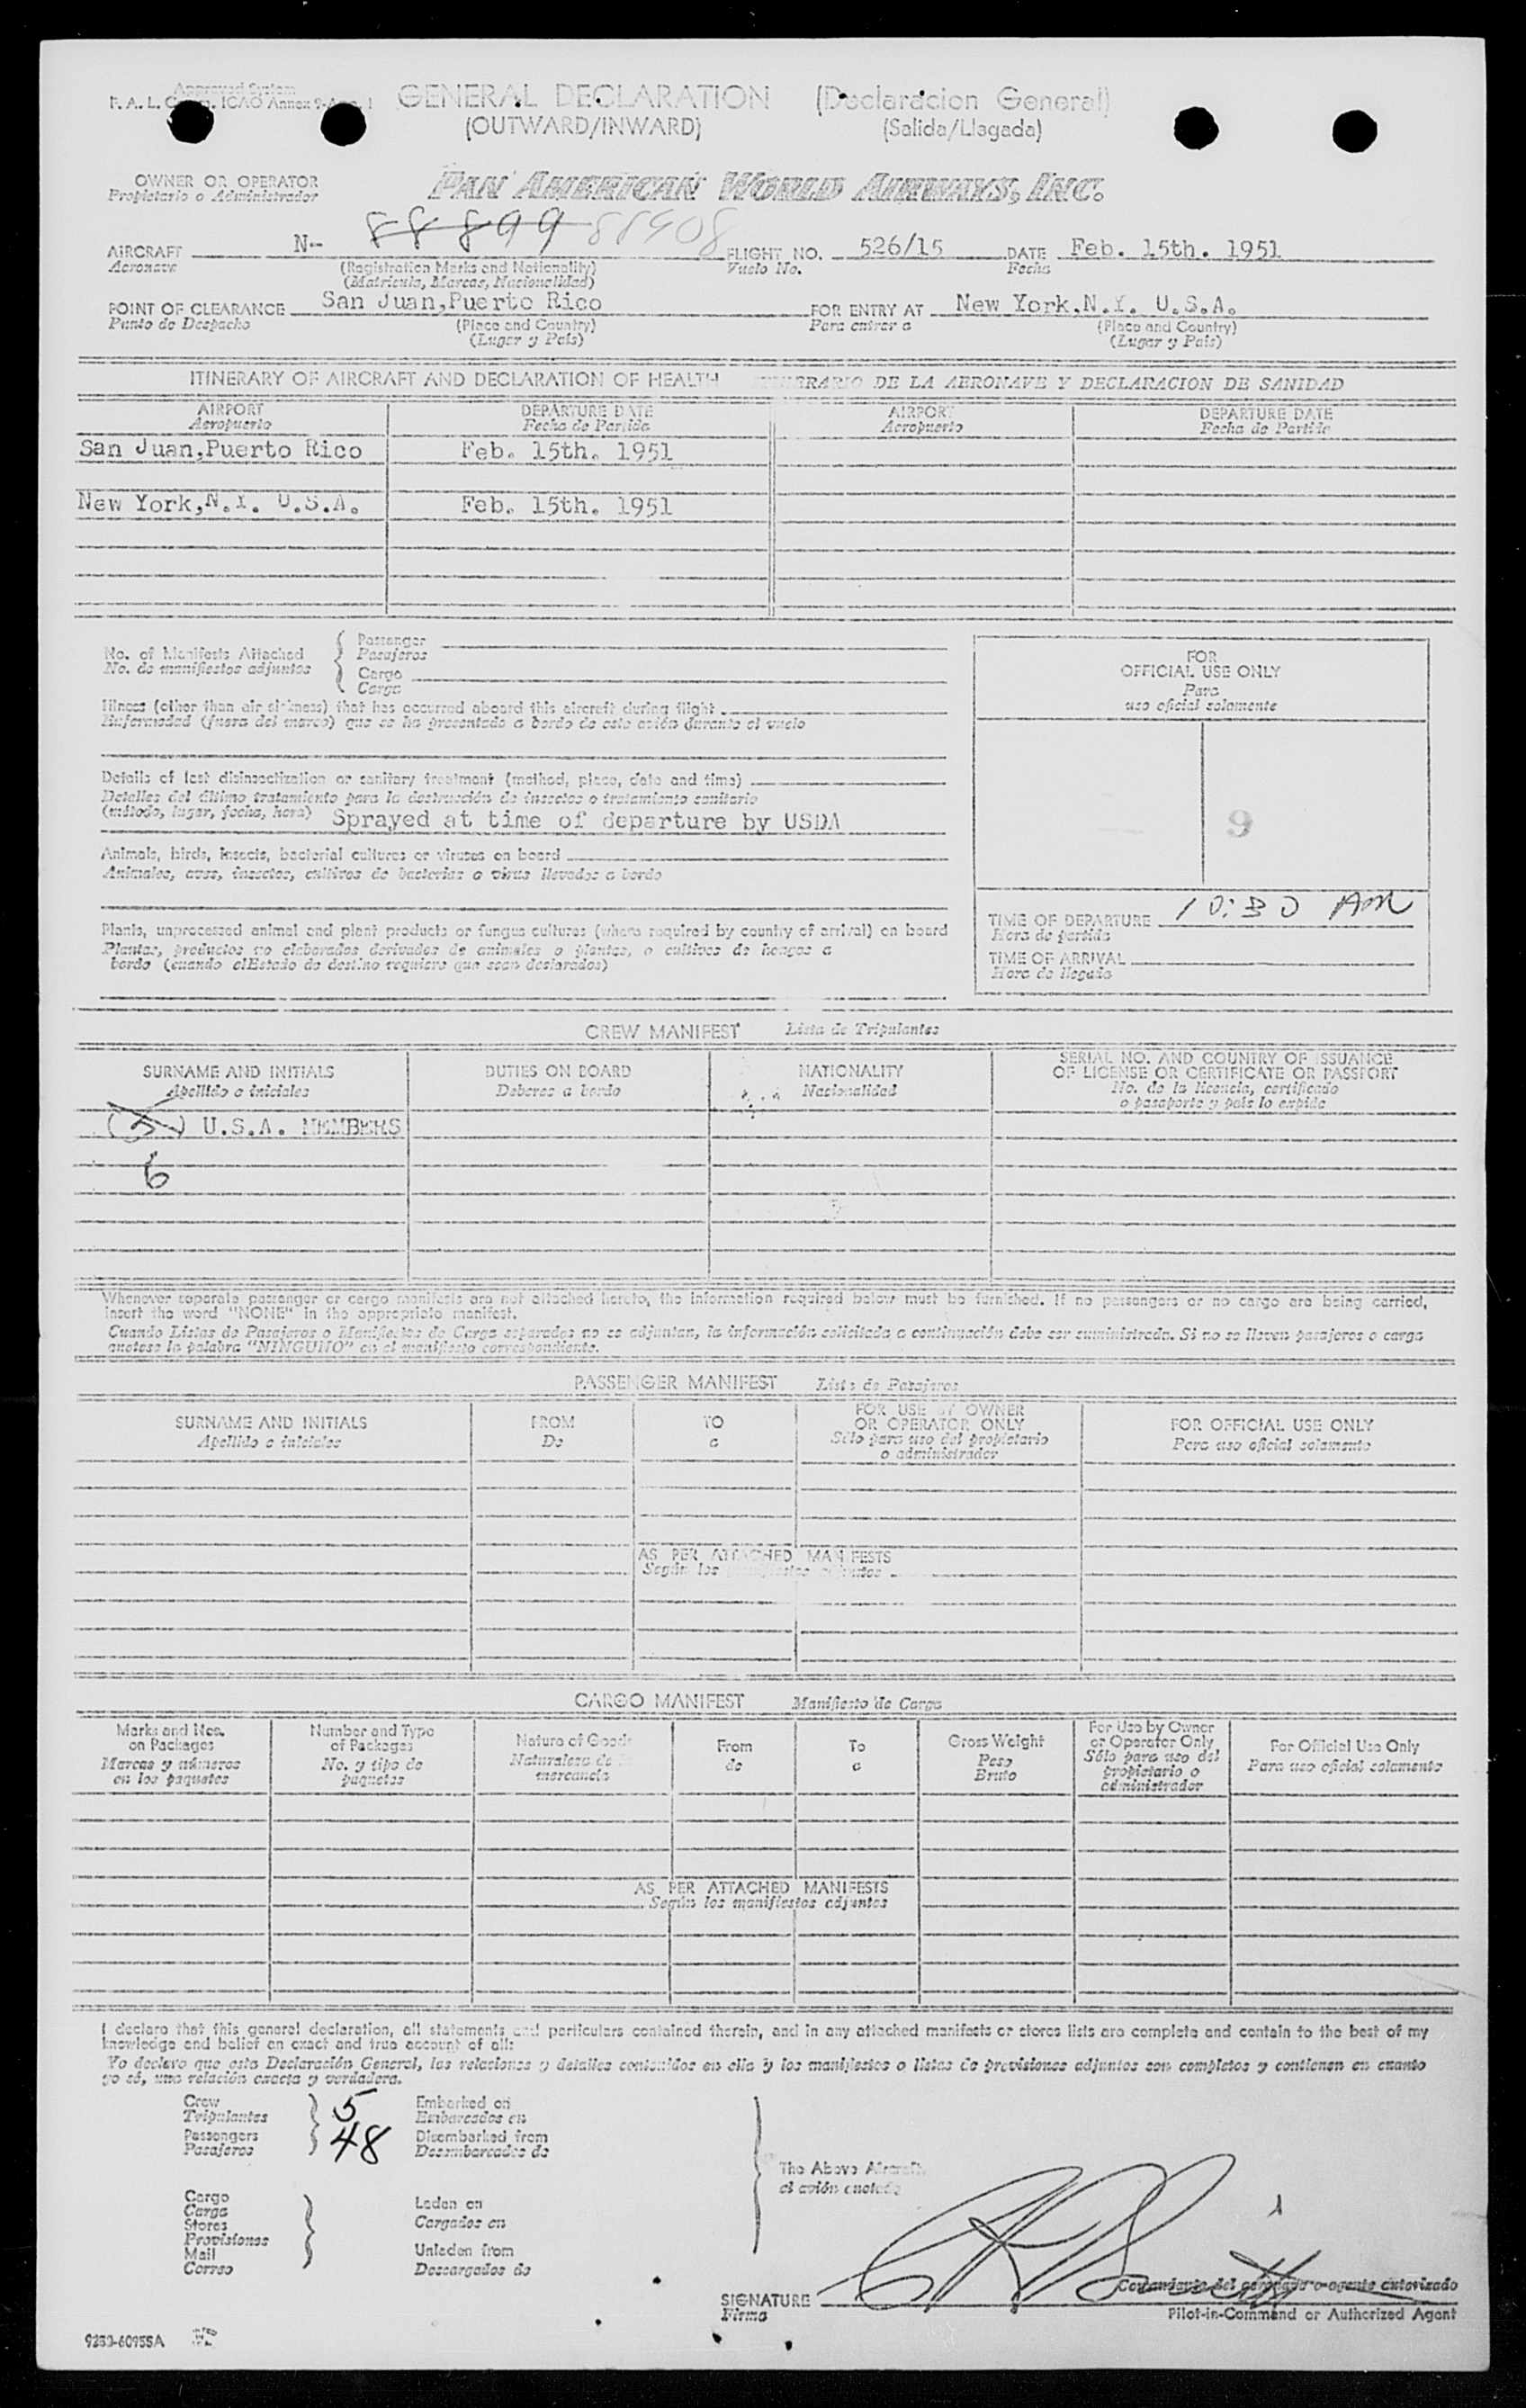 Approved System
F. A. L. ICAO Annex 9
GENERAL DECLARATION (Declaracion General)
(OUTWARD/INWARD) (Salida/Llegada)
OWNER OR OPERATOR
Propietario o Administrador
PAN AMERICAN WORLD AIRWAYS, INC.
AIRCRAFT N- 88899 FLIGHT NO. 526/15 DATE Feb. 15th. 1951
Aeronave (Registration Marks and Nationality) Vuelo No. Fecha
(Matricula, Marcas, Nacionalidad)
POINT OF CLEARANCE San Juan,Puerto Rico FOR ENTRY AT New York,N.Y. U.S.A.
Punto de Despacho (Place and Country) Para entrar a (Place and Country)
(Lugar y País) (Lugar y País)
ITINERARY OF AIRCRAFT AND DECLARATION OF HEALTH ITINERARIO DE LA AERONAVE Y DECLARACION DE SANIDAD
AIRPORT DEPARTURE DATE AIRPORT DEPARTURE DATE
Aeropuerto Fecha de Partida Aeropuerto Fecha de Partida
San Juan,Puerto Rico Feb. 15th. 1951
New York,N.Y. U.S.A. Feb. 15th. 1951
No. of Manifests Attached
No. de manifiestos adjuntos
Passenger
Pasajeros
Cargo
Carga
Illness (other than air sickness) that has occurred aboard this aircraft during flight
Enfermedad (fuera del mareo) que se ha presentado a bordo de este avión durante el vuelo
Details of last disinsectization or sanitary treatment (method, place, date and time)
Detalles del último tratamiento para la destrucción de insectos o tratamiento sanitario
(método, lugar, fecha, hora) Sprayed at time of departure by USDA
Animals, birds, insects, bacterial cultures or viruses on board
Animales, aves, insectos, cultivos de bacterias o virus llevados a bordo
Plants, unprocessed animal and plant products or fungus cultures (where required by country of arrival) on board
Plantas, productos no elaborados derivados de animales o plantas, o cultivos de hongos a
bordo (cuando elEstado de destino requiere que sean declarados)
FOR
OFFICIAL USE ONLY
Para
uso oficial solamente
9
TIME OF DEPARTURE 10:30 AM
Hora de partida
TIME OF ARRIVAL
Hora de llegada
CREW MANIFEST Lista de Tripulantes
SURNAME AND INITIALS DUTIES ON BOARD NATIONALITY SERIAL NO. AND COUNTRY OF ISSUANCE
OF LICENSE OR CERTIFICATE OR PASSPORT
Apellido e iniciales Deberes a bordo Nacionalidad No. de la licencia, certificado
o pasaporte y país lo expide
(5) U.S.A. MEMBERS
6
Whenever separate passenger or cargo manifests are not attached hereto, the information required below must be furnished. If no passengers or no cargo are being carried,
insert the word "NONE" in the appropriate manifest.
Cuando Listas de Pasajeros o Manifiestos de Carga separados no se adjuntan, la información solicitada a continuación debe ser suministrada. Si no se llevan pasajeros o carga
anotese la palabra "NINGUNO" en el manifiesto correspondiente.
PASSENGER MANIFEST Lista de Pasajeros
SURNAME AND INITIALS FROM TO FOR USE BY OWNER OR OPERATOR ONLY FOR OFFICIAL USE ONLY
Apellido e iniciales De a Sólo para uso del propietario o administrador Para uso oficial solamente
AS PER ATTACHED MANIFESTS
Según los manifiestos adjuntos
CARGO MANIFEST Manifiesto de Carga
Marks and Nos. on Packages Number and Type of Packages Nature of Goods From To Gross Weight For Use by Owner or Operator Only For Official Use Only
Marcas y números en los paquetes No. y tipo de paquetes Naturaleza de la mercancía de a Peso Bruto Sólo para uso del propietario o administrador Para uso oficial solamente
AS PER ATTACHED MANIFESTS
Según los manifiestos adjuntos
I declare that this general declaration, all statements and particulars contained therein, and in any attached manifests or stores lists are complete and contain to the best of my
knowledge and belief an exact and true account of all:
Yo declaro que esta Declaración General, las relaciones y detalles contenidos en ella y los manifiestos o listas de provisiones adjuntos son completos y contienen en cuanto
yo sé, una relación exacta y verdadera.
Crew 5 Embarked on
Tripulantes Embarcados en
Passengers 48 Disembarked from
Pasajeros Desembarcados de
The Above Aircraft
el avión anotado
Cargo Laden on
Carga Cargados en
Stores
Provisiones
Mail Unladen from
Correo Descargados de
SIGNATURE
Firma
Comandante del aeronave o agente autorizado
Pilot-in-Command or Authorized Agent